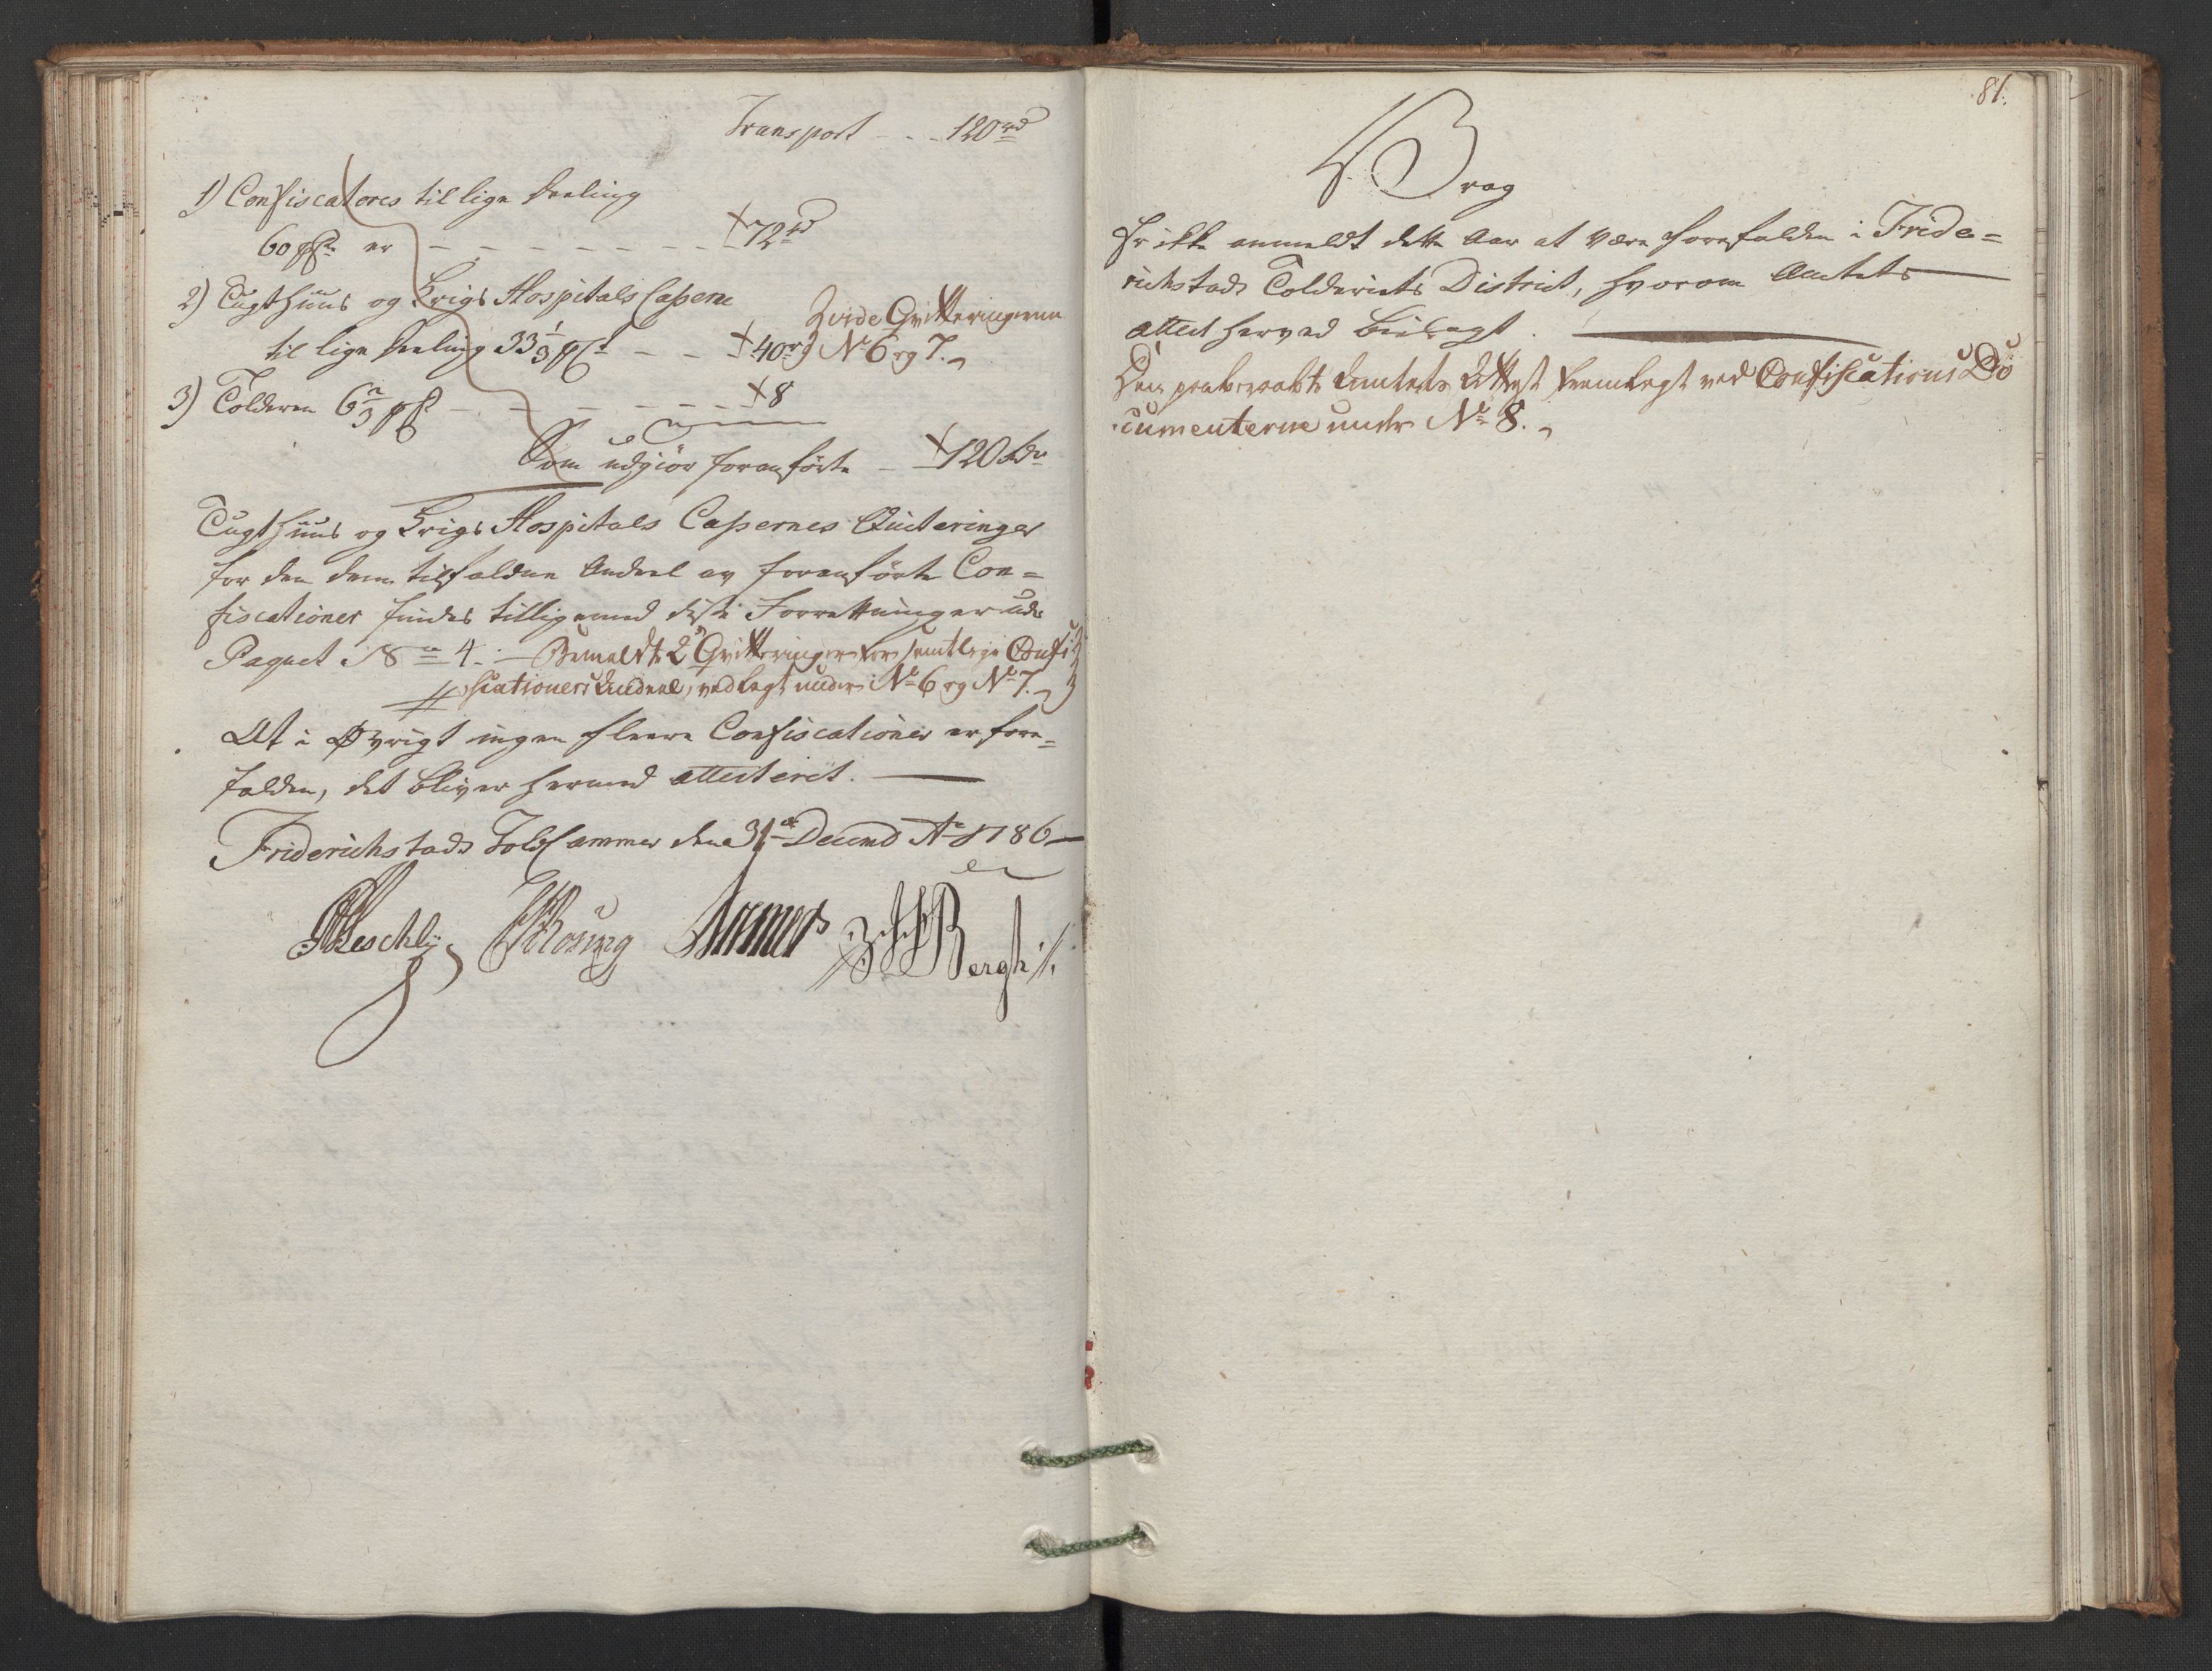 Transport - - - 120 rd
1) Confiscatores til lige Deeling
60 pCt er - - - - - - - - 72 rd
2) Tugthuus og Krigs Hospitals Caserne
til lige Deeling 33 1/3 pCt - - - 40 rd
Zvide Qvitteringerne
No 6 og 7.
3) Tolderen 6 2/3 pC - - - - - - - 8
Som udgiør foranførte - 120 Rdr
Tugthuus og Krigs Hospitals Casernes Quiteringer
for den dem tilfaldne Andeel av foranførte Con=
fiscationer findes tilligemed disse Forretninger udi
Paquet No 4. - Bemeldte 2de Qvitteringer for samtlige Confi
scationers Andeel, vedlagt under No 6 og No 7.
At i Øvrigt ingen fleere Confiscationer er fore=
falden, det bliver hermed attesteret.
Friderichstads Toldkammer den 31te Decemb Ao 1786
81.
Vrag
Er ikke anmeldt dette Aar at være forefalden i Fride=
richstads Tolderiets District, hvorom Amtets
attest herved bielagt.
Den paaberaabte Amtets Attest fremlagt ved Confiscations Do
cumenterne under No 8.